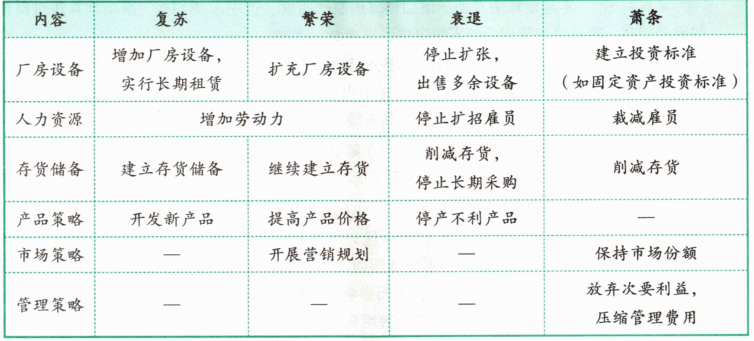 内容 复苏 繁荣 衰退 萧条
厂房设备 增加厂房设备，实行长期租赁 扩充厂房设备 停止扩张，出售多余设备 建立投资标准（如固定资产投资标准）
人力资源 增加劳动力 停止扩招雇员 裁减雇员
存货储备 建立存货储备 继续建立存货 削减存货，停止长期采购 削减存货
产品策略 开发新产品 提高产品价格 停产不利产品 —
市场策略 — 开展营销规划 — 保持市场份额
管理策略 — — — 放弃次要利益，压缩管理费用